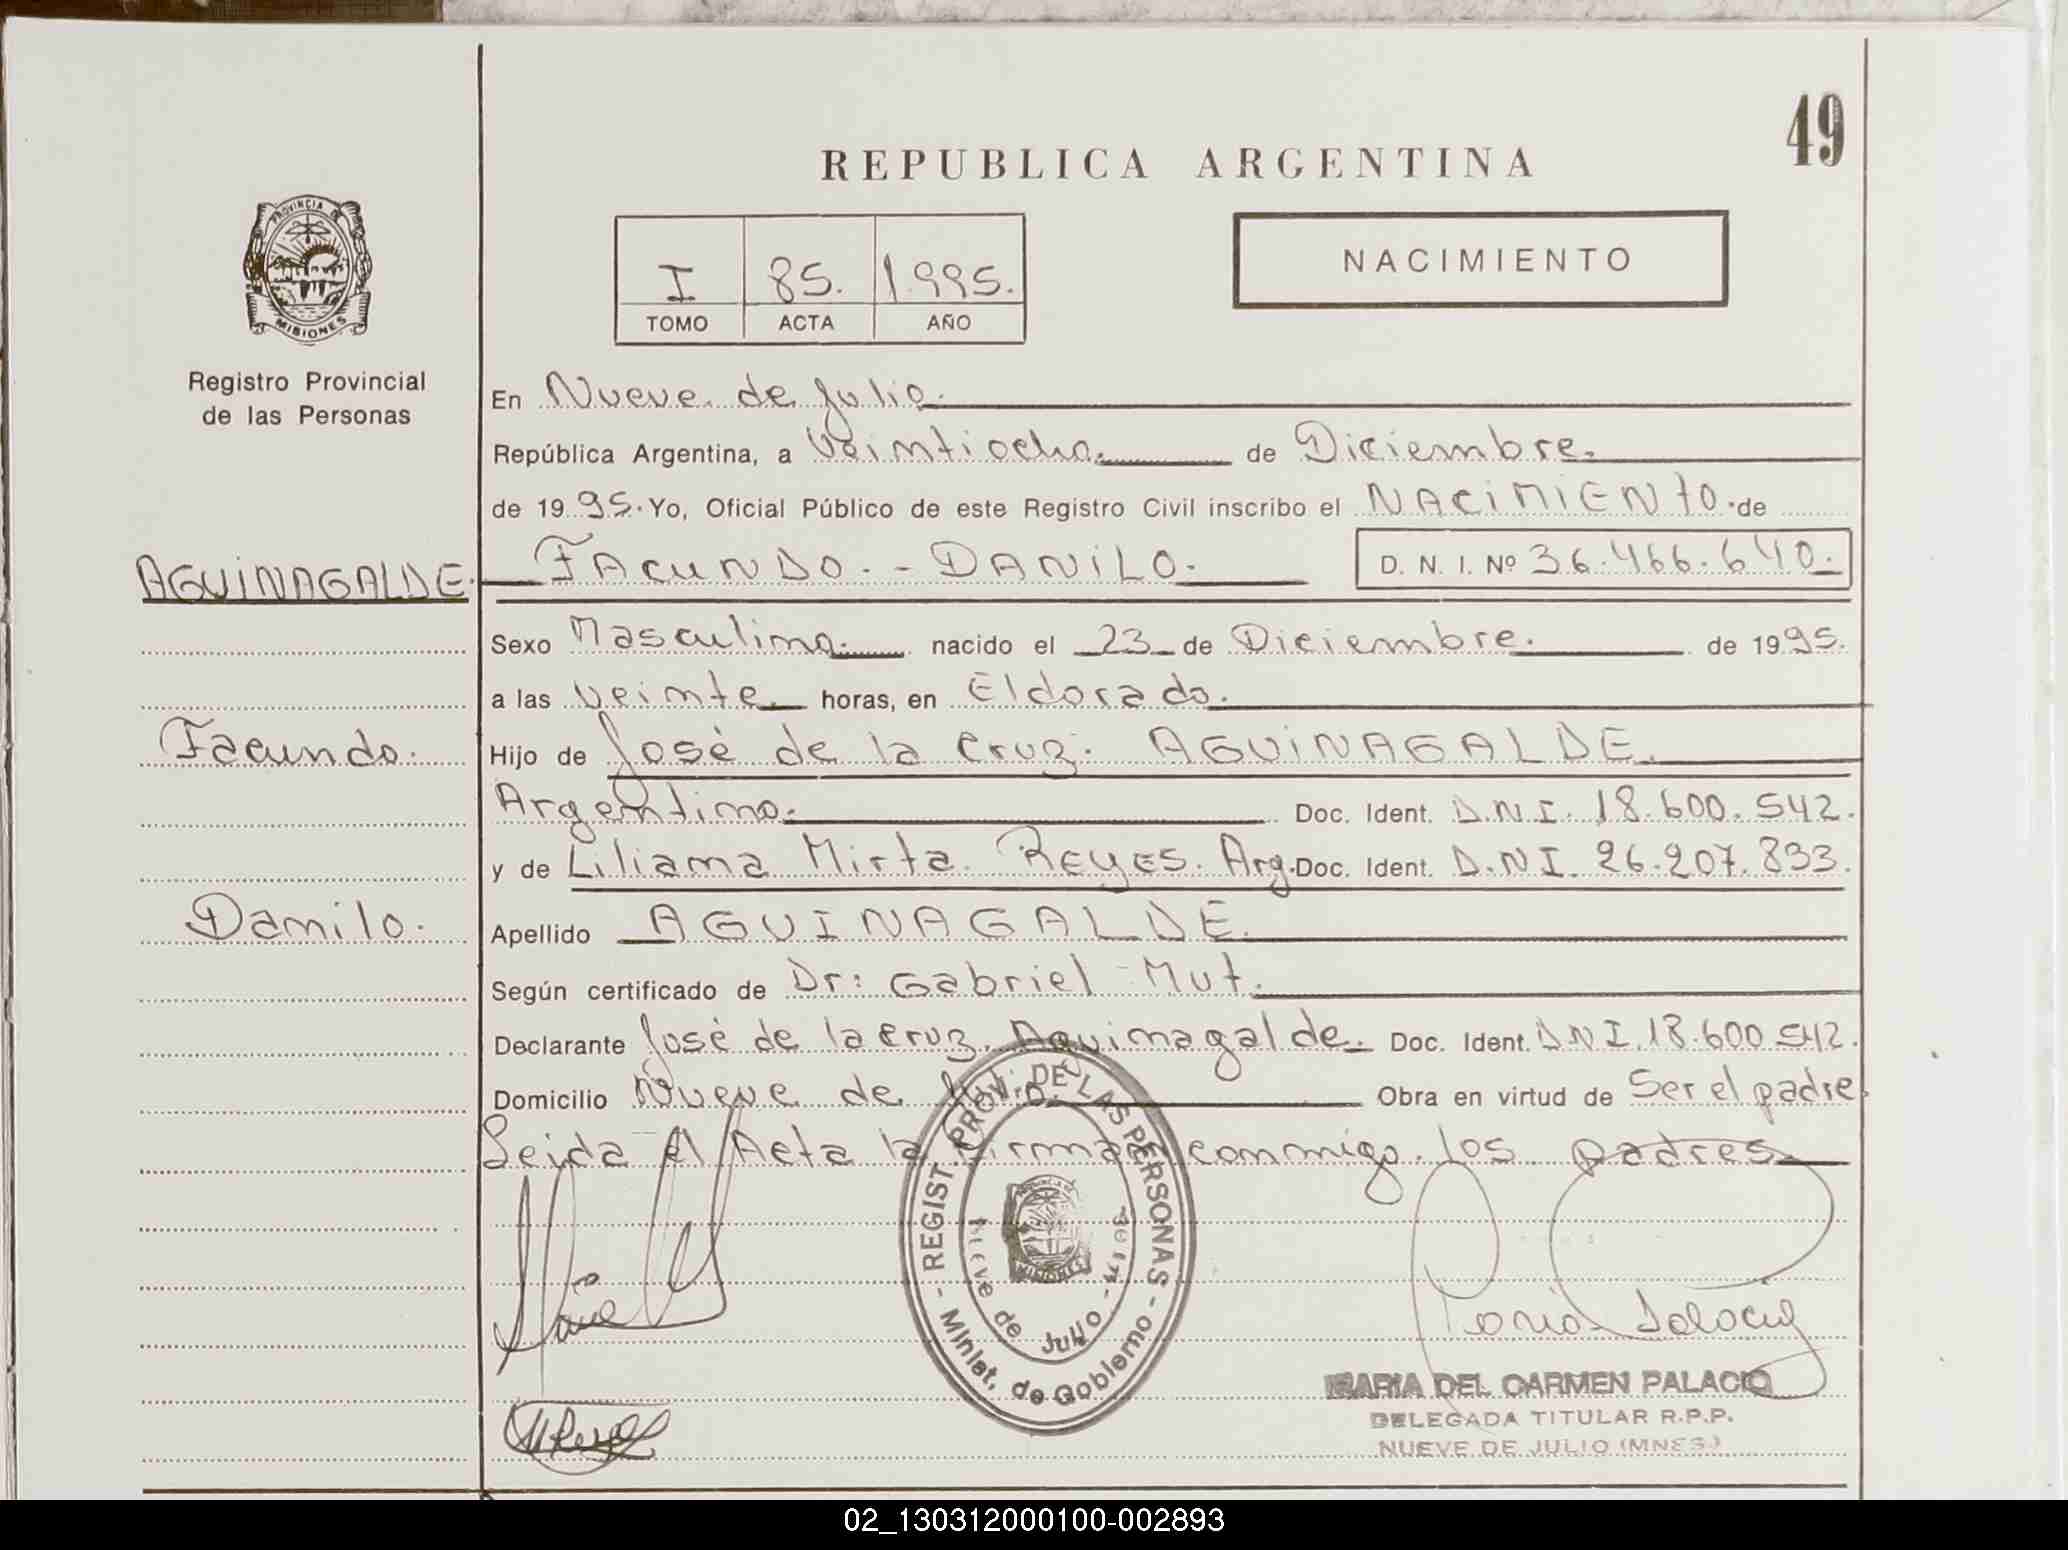 49
REPUBLICA ARGENTINA
PROVINCIA DE
MISIONES
Registro Provincial
de las Personas
I 85. 1.995.
TOMO ACTA AÑO
NACIMIENTO
En Nueve de Julio.
República Argentina, a Veintiocho. de Diciembre.
de 1995. Yo, Oficial Público de este Registro Civil inscribo el NACIMIENTO. de
AGUINAGALDE. FACUNDO. - DANILO. D. N. I. Nº 36.466.640.
Sexo Masculino. nacido el 23 de Diciembre. de 1995.
a las veinte horas, en Eldorado.
Facundo. Hijo de José de la Cruz. AGUINAGALDE.
Argentino. Doc. Ident. D.N.I. 18.600.542.
y de Liliana Mirta. Reyes. Arg. Doc. Ident. D.N.I. 26.207.833.
Danilo. Apellido AGUINAGALDE.
Según certificado de Dr: Gabriel Mut.
Declarante José de la Cruz. Aguinagalde. Doc. Ident. DNI.18.600.542.
Domicilio Nueve de Julio. Obra en virtud de Ser el padre
Leida el Acta la firman conmigo los padres
REGIST. PROV. DE LAS PERSONAS
- Minist. de Gobierno -
Nueve de Julio
MISIONES
MARIA DEL CARMEN PALACIO
DELEGADA TITULAR R.P.P.
NUEVE DE JULIO (MNES.)
02_130312000100-002893